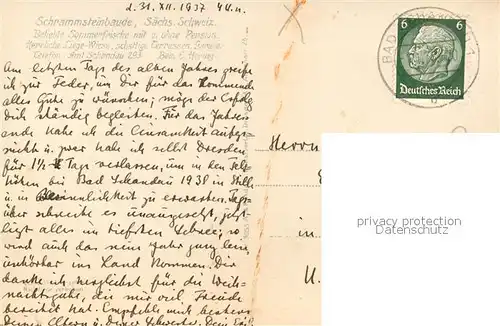 d. 31. XII. 1937
Schrammsteinbaude, Sächs. Schweiz.
Beliebte Sommerfrische mit u. ohne Pension.
Herrliche Lage
Telefon: Amt Schandau 293
Am letzten Tag des alten Jahres greife
ich zur Feder, um Dir für das kommende
alles Gute zu wünschen; möge der Erfolg
Dich ständig begleiten. Für das Jahres-
ende habe ich die Einsamkeit aufge-
sucht u. zwar habe ich selbst Dresden
für 1½ Tag verlassen, um in den
bei Bad Schandau 1938 in Stille
u. in Besinnlichkeit zu erwarten. Tags-
über schneite es unausgesetzt, jetzt
liegt alles im tiefsten Schnee; so
wird auch das neue Jahr ganz leise,
unhörbar ins Land kommen. Dir
danke ich herzlichst für die Weih-
nachtsgabe, die mir viel Freude
bereitet hat. Empfehle mich bestens
Deinen Eltern u. Deiner Schwester.
6 6
Deutsches Reich
BAD SCHANDAU
Herrn
in
privacy protection
privacy protection